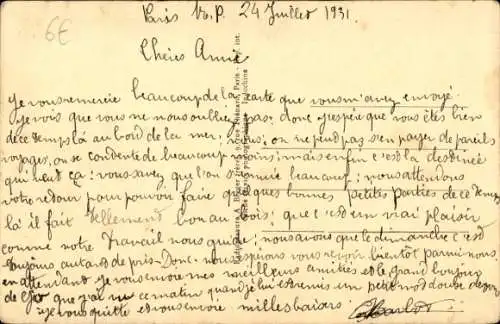 Paris V.P. 24 Juillet 1931.
6€
Chères Amie
Je vous remercie beaucoup de la carte que vous m'avez envoyé.
Je vois que vous ne nous oubliez pas, donc j'espère que vous êtes bien
de ce temps là au bord de la mer, nous, on ne peud pas s'en payer de pareils
voyages, on se condente de beaucoup moins; mais enfin c'est la destinée
qui veud ça: vous savez que l'on s'ennuie beaucoup; nous attendons
votre redour pour pouvoir faire quelques bonnes Petites Parties de ce temps
là il fait Tellement bon au bois; que c'est un vrai plaisir
comme notre Travail nous guide; nous avons que le dimanche c'est
Toujours autand de pris. Donc, nous espérons vous revoir bientôt parmi nous.
en attendant je vous envoie mes meilleurs amitiés et le grand bonjour
que j'ai ce matin quand je lui est remis un petit mod
je vous quitte et vous envoie milles baisers. Charlot